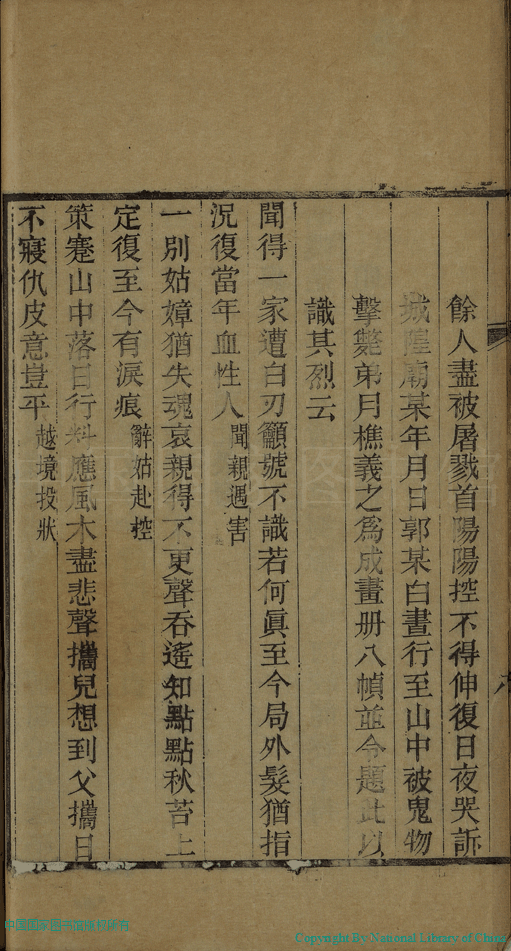 餘人盡被屠戮首陽陽控不得伸復日夜哭訴
城隍廟某年月日郭某白晝行至山中被鬼物
擊斃弟月樵義之爲成畫册八幀並令題此以
識其烈云
聞得一家遭白刃籲號不識若何眞至今局外髮猶指
況復當年血性人聞親遇害
一別姑嫜猶失魂哀親得不更聲吞遙知點點秋苔上
定復至今有淚痕辭姑赴控
策蹇山中落日行料應風木盡悲聲攜兒想到父攜日
不寢仇皮意豈平越境投狀
Copyright By National Library of China